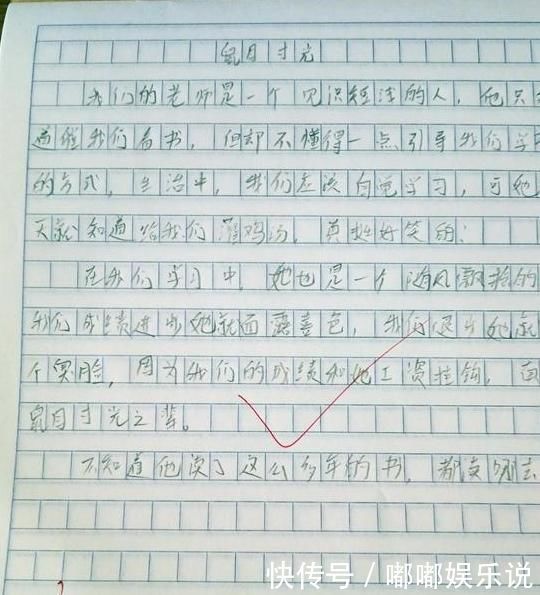 鼠目寸光
我们的老师是一个见识短浅的人，他只
道催我们看书，但却不懂得一点引导我们学
的方式，生活中，我们应该自觉学习，可她
天就知道给我们灌鸡汤，真挺好笑的；
在我们学习中，她也是一个随风飘摇的
我们成绩进步她就面露喜色，我们退步她就
个臭脸，因为我们的成绩和她工资挂钩，真
鼠目寸光之辈。
不知道他读了这么多年的书，都读哪去
快传号/嘟嘟娱乐说